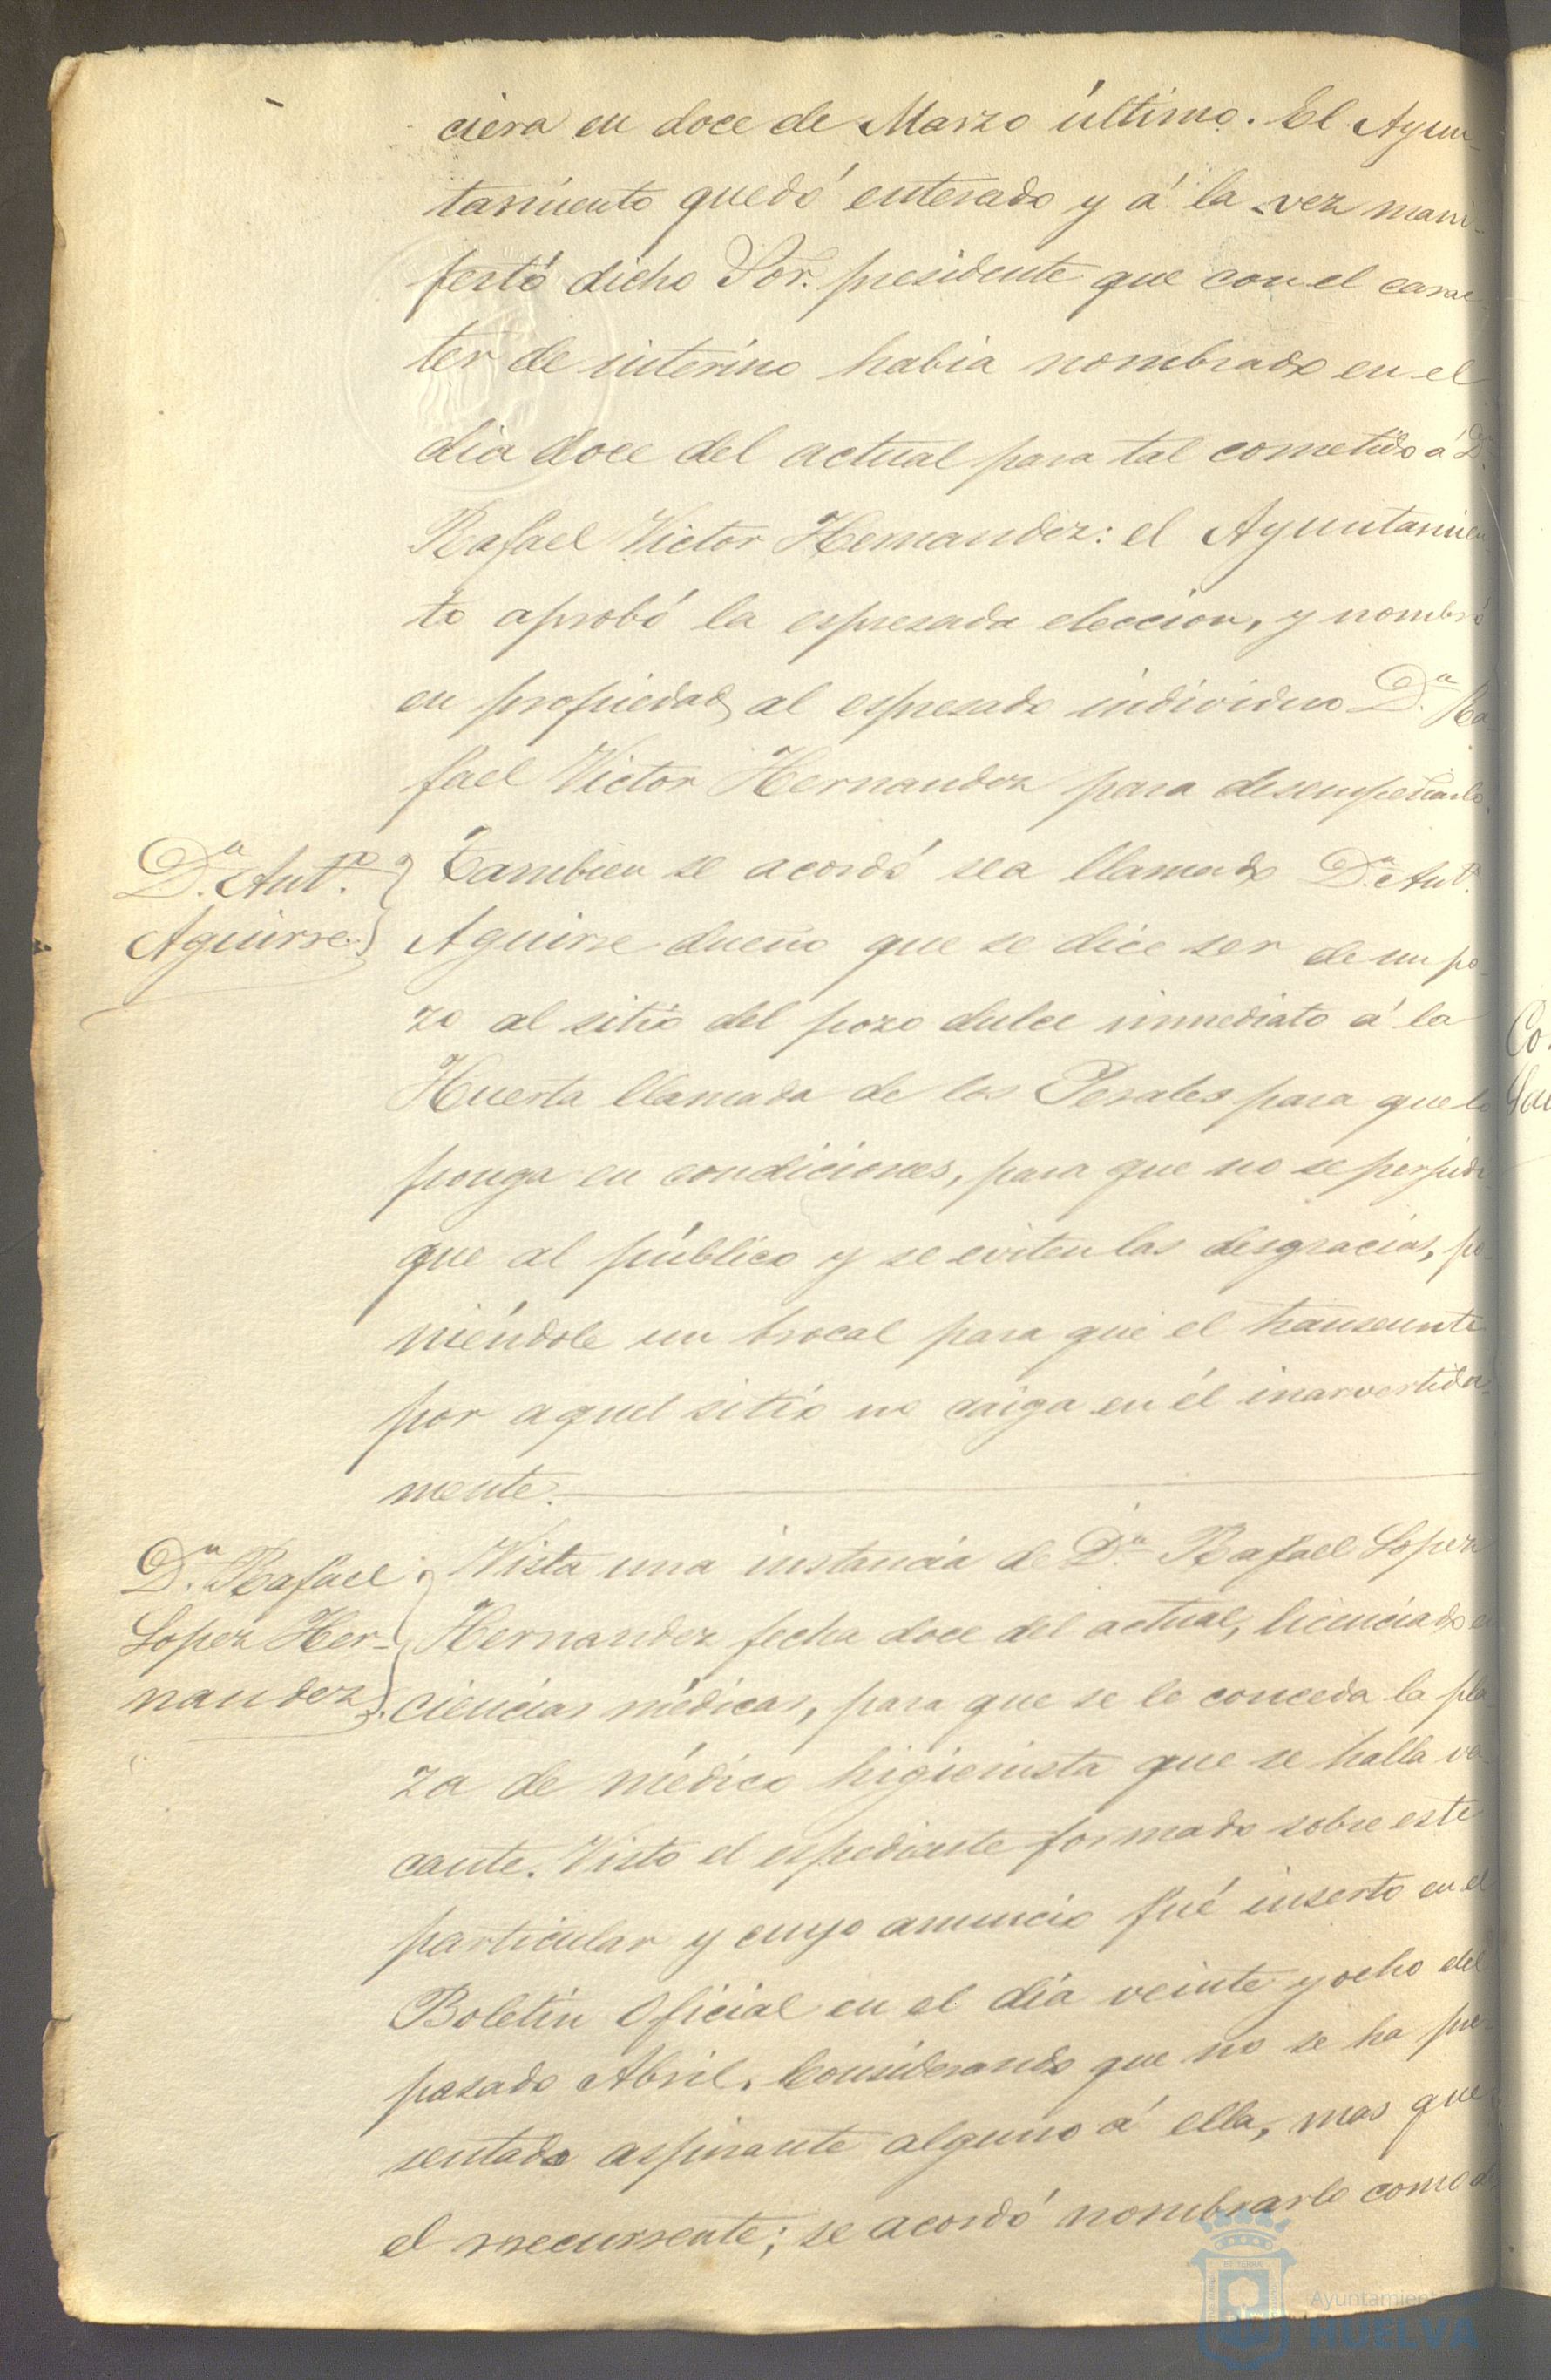 ciera en doce de Marzo último. El Ayun-
tamiento quedó enterado y á la vez mani-
festó dicho Sor. presidente que con el carac-
ter de interino habia nombrado en el
dia doce del actual para tal cometido á Dn.
Rafael Victor Hernandez: el Ayuntamien-
to aprobó la espresada eleccion, y nombró
en propiedad al espresado individuo Dn. Ra-
fael Victor Hernandez para desempeñarlo.
Dn. Anto.
Aguirre.
Tambien se acordó sea llamado Dn. Anto.
Aguirre dueño que se dice ser de un po-
zo al sitio del pozo dulce inmediato á la
Huerta llamada de los Perales para que lo
ponga en condiciones, para que no se perjudi-
que al público y se eviten las desgracias, po-
niéndole un brocal para que el transeunte
por aquel sitio no caiga en él inarvertida-
mente.
Dn. Rafael
Lopez Her-
nandez.
Vista una instancia de Dn. Rafael Lopez
Hernandez fecha doce del actual, licenciado en
ciencias médicas, para que se le conceda la pla-
za de médico higienista que se halla va-
cante. Visto el espediente formado sobre este
particular y cuyo anuncio fué inserto en el
Boletin Oficial en el dia veinte y ocho del
pasado Abril. Considerando que no se ha pre-
sentado aspirante alguno á ella, mas que
el rrecurrente; se acordó nombrarlo como de
Co.
Ayuntamiento
HUELVA